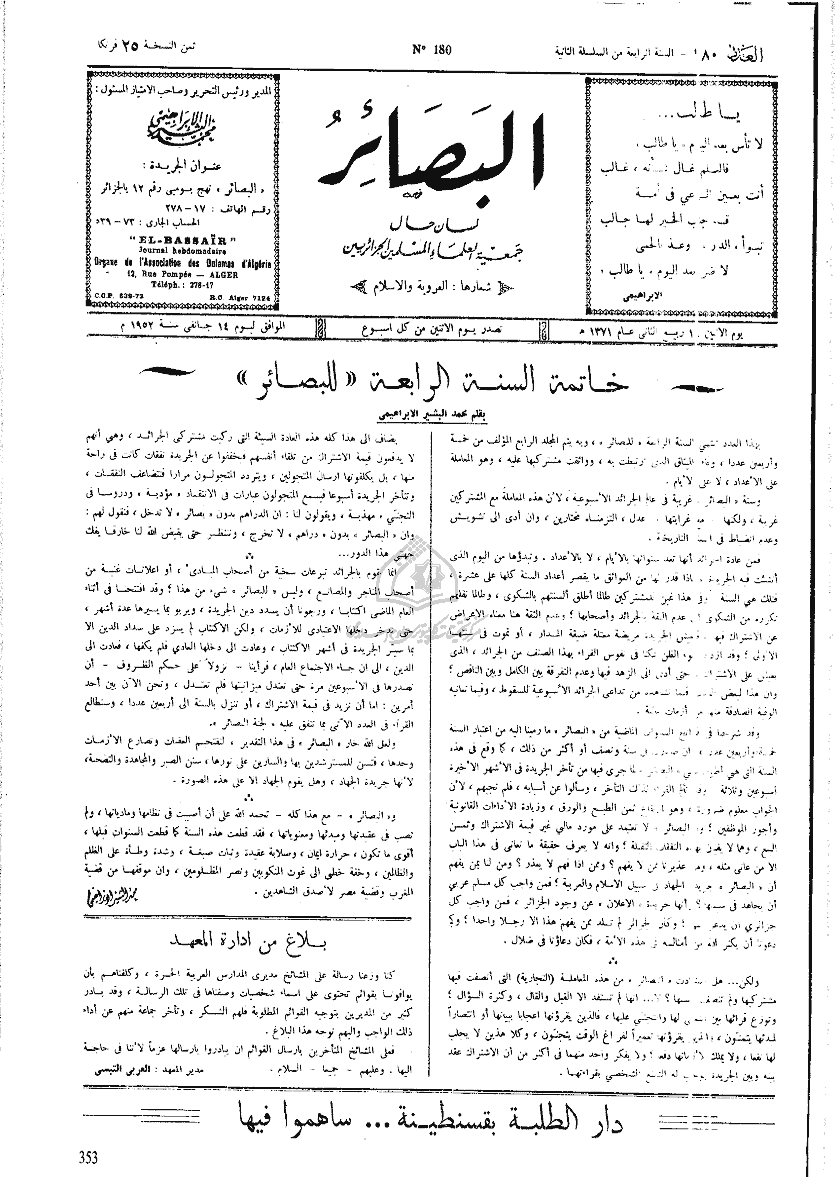 العدد ١٨٠ - السنة الرابعة من السلسلة الثانية
N° 180
ثمن النسخة ٢٥ فرنكا
يا طالب...
لا تأس بعد اليوم ، يا طالب ،
فالعلم غال شأنه ، غالب
أنت بعين الرعي في أمة
قد جاب الخير لها جالب
تبوأ الدار وغذ الحمى
لا ضر بعد اليوم ، يا طالب ،
الابراهيمي
البَصَائِر
لسان حال
جمعية العلماء المسلمين الجزائريين
شعارها : العروبة والاسلام
المدير ورئيس التحرير وصاحب الامتياز المسئول :
محمد البشير الابراهيمي
عنوان الجريدة :
« البصائر » نهج بومبي رقم ١٢ بالجزائر
رقم الهاتف : ١٧-٢٧٨
الحساب الجاري : ٧٣-٥٣٩
"EL-BASSAÏR"
Journal hebdomadaire
Organe de l'Association des Oulamas d'Algérie
12, Rue Pompée — ALGER
Téléph. : 278-17
C.C.P. 539-73 R.C. Alger 7124
يوم الاثنين ١٠ ربيع الثاني عام ١٣٧١ هـ
تصدر يوم الاثنين من كل اسبوع
الموافق ليوم ١٤ جانفي سنة ١٩٥٢ م
خاتمة السنة الرابعة «للبصائر»
بقلم محمد البشير الابراهيمي
بهذا العدد تنتهي السنة الرابعة « للبصائر » ، وبه يتم المجلد الرابع المؤلف من خمسة
وأربعين عددا ، وفاء بالميثاق الذي ارتبطت به ، وواثقت مشتركيها عليه ، وهو المعاملة
على الأعداد ، لا على الأيام .
وسنة « البصائر » غريبة في عالم الجرائد الأسبوعية ، لأن هذه المعاملة مع المشتركين
غريبة ، ولكنها مع غرابتها عدل ، التزمناه مختارين ، وان أدى الى تشويش
وعدم انضباط في السنة التاريخية .
فمن عادة الجرائد أنها تعد سنواتها بالأيام ، لا بالأعداد . وتبدؤها من اليوم الذي
أنشئت فيه الجريدة ، فاذا قدر لها من العوائق ما يقصر أعداد السنة كلها على عشرة ،
فتلك هي السنة وفي هذا غبن للمشتركين طالما أطلق ألسنتهم بالشكوى ، وطالما نقلهم
تكرره من الشكوى الى عدم الثقة بالجرائد وأصحابها ؛ وعدم الثقة هنا معناه الاعراض
عن الاشتراك فيها فتعيش الجريدة مريضة معتلة ضيقة المداد ، أو تموت في سنتها
الأولى ؛ وقد ازداد سوء الظن تمكنا في نفوس القراء بهذا الصنف من الجرائد ، الذي
يعيش على الاشتراكات حتى أدى الى الزهد فيها وعدم التفرقة بين الكامل وبين الناقص ؟
وان هذا لبعض السبب فيما نشاهده من تداعي الجرائد الأسبوعية للسقوط ، وفيما تعانيه
الوفية الصادقة منها من أزمات مالية .
وقد شرحنا في خواتيم السنوات الماضية من « البصائر » ما رمينا اليه من اعتبار السنة
خمسة وأربعين عددا ، ان صدرت في سنة ونصف أو أكثر من ذلك ، كما وقع في هذه
السنة التي هي أطول سني « البصائر » لما جرى فيها من تأخر الجريدة في الأشهر الأخيرة
أسبوعين وثلاثة وقد تألم القراء لذلك التأخر ، وسألوا عن أسبابه ، فلم نجبهم ، لأن
الجواب معلوم ضرورة ، وهو ارتفاع ثمن الطبع والورق ، وزيادة الأداءات القانونية
وأجور الموظفين ؟ و« البصائر » لا تعتمد على مورد مالي غير قيمة الاشتراك وثمن
البيع ، وهما لا يفيان بهذه النفقات الثقيلة ؛ وانه لا يعرف حقيقة ما نعاني في هذا الباب
الا من عانى مثله ، ومن عذيرنا ممن لا يفهم ؟ وممن اذا فهم لا يعذر ؟ ومن لنا بمن يفهم
أن « البصائر » جريدة الجهاد في سبيل الاسلام والعربية ؟ فمن واجب كل مسلم عربي
أن يجاهد في سبيلها ؛ وأنها جريدة الاعلان عن وجود الجزائر ، فمن واجب كل
جزائري ان يدعو اليها ؛ وكأن الجزائر لم تلد ممن يفهم هذا الا رجلا واحدا ؛ وكم
دعونا أن يكثر الله من أمثاله في هذه الأمة ، فكان دعاؤنا في ضلال .
ولكن... هل استفادت « البصائر » من هذه المعاملة (التجارية) التي أنصفت فيها
مشتركيها ولم تنصف نفسها ؟ لا... انها لم تستفد الا القيل والقال ، وكثرة السؤال ؛
وتوزع قرائها بين المثني لها والمتجني عليها ، فالذين يقرؤنها اعجابا ببيانها أو انتصاراً
لمبدئها يتمنون ، والذين يقرؤنها تعميراً لفراغ الوقت يتجنون ، وكلا هذين لا يجلب
لها نفعا ، ولا يملك لأزماتها دفعا ؛ ولا يفكر واحد منهما في أكثر من أن الاشتراك عقد
بينه وبين الجريدة يوجب له التمتع الشخصي بقراءتها .
يضاف الى هذا كله هذه العادة السيئة التي ركبت مشتركي الجرائد ، وهي أنهم
لا يدفعون قيمة الاشتراك من تلقاء أنفسهم فيخففوا عن الجريدة نفقات كانت في راحة
منها ، بل يكلفونها ارسال المتجولين ، ويتردد المتجولون مرارا فتتضاعف النفقات ،
وتتأخر الجريدة أسبوعا فيسمع المتجولون عبارات في الانتقاد « مؤدبة » ودروسا في
التجني « مهذبة » ويقولون لنا : ان الدراهم بدون « بصائر » لا تدخل ، فنقول لهم :
وان « البصائر » بدون « دراهم » لا تخرج ، وننتظر حتى يقيض الله لنا خارقا يفك
جهتي هذا الدور...
انما تقوم بالجرائد تبرعات سخية من أصحاب المبادىء ؛ أو اعلانات غنية من
أصحاب المتاجر والمصانع ، وليس « للبصائر » شيء من هذا ؛ وقد افتتحنا في أثناء
العام الماضي اكتتابا ، ورجونا أن يسدد دين الجريدة ، ويربو بما يسيرها عدة أشهر ،
حتى تدخر دخلها الاعتيادي للأزمات ، ولكن الاكتتاب لم يجرئ على سداد الدين الا
بما سيّر الجريدة في أشهر الاكتتاب ، وعادت الى دخلها العادي فلم يكفها ، فعادت الى
الدين ، الى ان جاء الاجتماع العام ، فرأينا - نزولاً على حكم الظروف - أن
تصدرها في الأسبوعين مرة حتى تعتدل ميزانيتها فلم تعتدل ، ونحن الآن بين أحد
أمرين : اما أن نزيد في قيمة الاشتراك ، أو تنزل بالسنة الى أربعين عددا ، وسنطالع
القراء في العدد الآتي بما تتفق عليه « لجنة البصائر » .
ولعل الله خار « البصائر » في هذا التقدير ، لتقتحم العقبات وتصارع الأزمات
وحدها ، فتسن للمسترشدين بها والسارين على نورها ، سنن الصبر والمجاهدة والتضحية ،
لأنها جريدة الجهاد ، وهل يقوم الجهاد الا على هذه الصورة .
و« البصائر » - مع هذا كله - تحمد الله على أن أصيبت في نظامها ومادياتها ، ولم
تصب في عقيدتها ومبدئها ومعنوياتها ، فقد قطعت هذه السنة كما قطعت السنوات قبلها ،
أقوى ما تكون ، حرارة ايمان ، وصلابة عقيدة وثبات صيغة ، وشدة وطأة على الظلم
والظالمين ، وخفة خطى الى غوث المنكوبين ونصر المظلومين ، وان موقفها من قضية
المغرب وقضية مصر لأصدق الشاهدين .
محمد البشير الابراهيمي
بلاغ من ادارة المعهد
كنا وزعنا رسالة على المشائخ مديري المدارس العربية الحرة ، وكلفناهم بأن
يوافونا بقوائم تحتوي على اسماء شخصيات وصفناها في تلك الرسالة ، وقد بادر
كثير من المديرين بتوجيه القوائم المطلوبة فلهم التشكر ، وتأخر جماعة منهم عن أداء
ذلك الواجب واليهم نوجه هذا البلاغ .
فعلى المشائخ المتأخرين بارسال القوائم ان يبادروا بارسالها عزماً لأننا في حاجة
اليها ، وعليهم - جميعا - السلام . مدير المعهد : العربي التبسي
دار الطلبة بقسنطينة ... ساهموا فيها
353